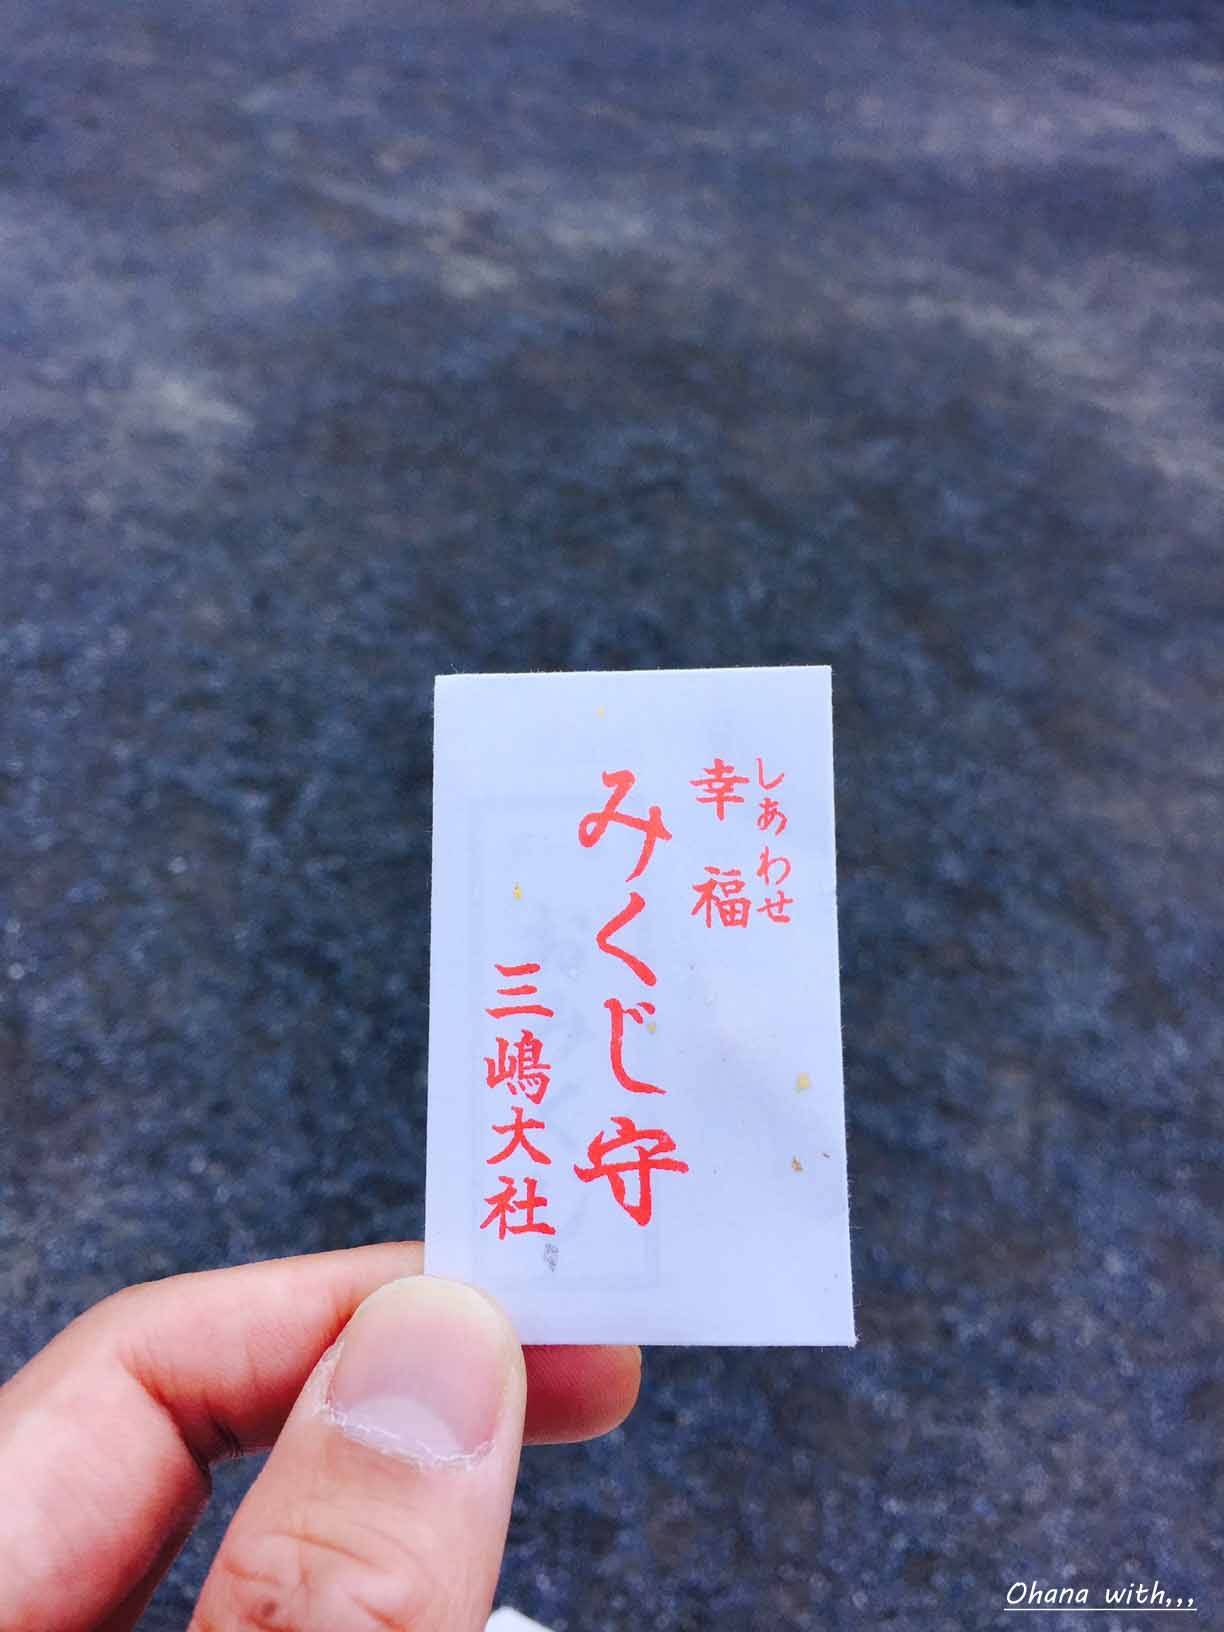 しあわせ
幸福
みくじ守
三嶋大社
Ohana with,,,